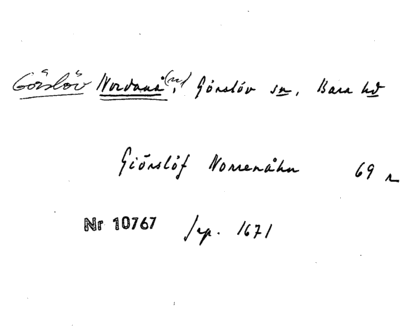 Görslöv Nordanå, Görslöv sn, Bara hd
Giörslöf Norrenåhn 69 r
Nr 10767 Jrp. 1671